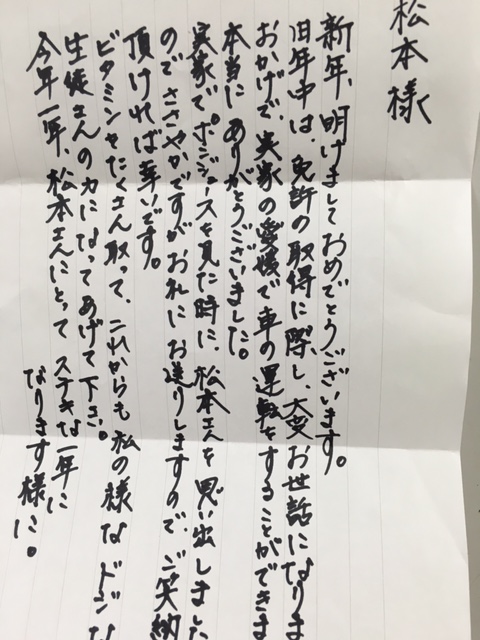 松本様
新年、明けましておめでとうございます。
旧年中は、免許の取得に際し、大変お世話になりま
おかげで、実家の愛媛で車の運転をすることができま
本当に ありがとうございました。
実家で、ポンジュースを見た時に、松本さんを思い出しました
ので ささやかですが お礼に お送りしますので、ご笑納
頂ければ幸いです。
ビタミンをたくさん取って、これからも 私の様な ドジな
生徒さんの力になってあげて下さい。
今年一年、松本さんにとって ステキな一年に
なります様に。